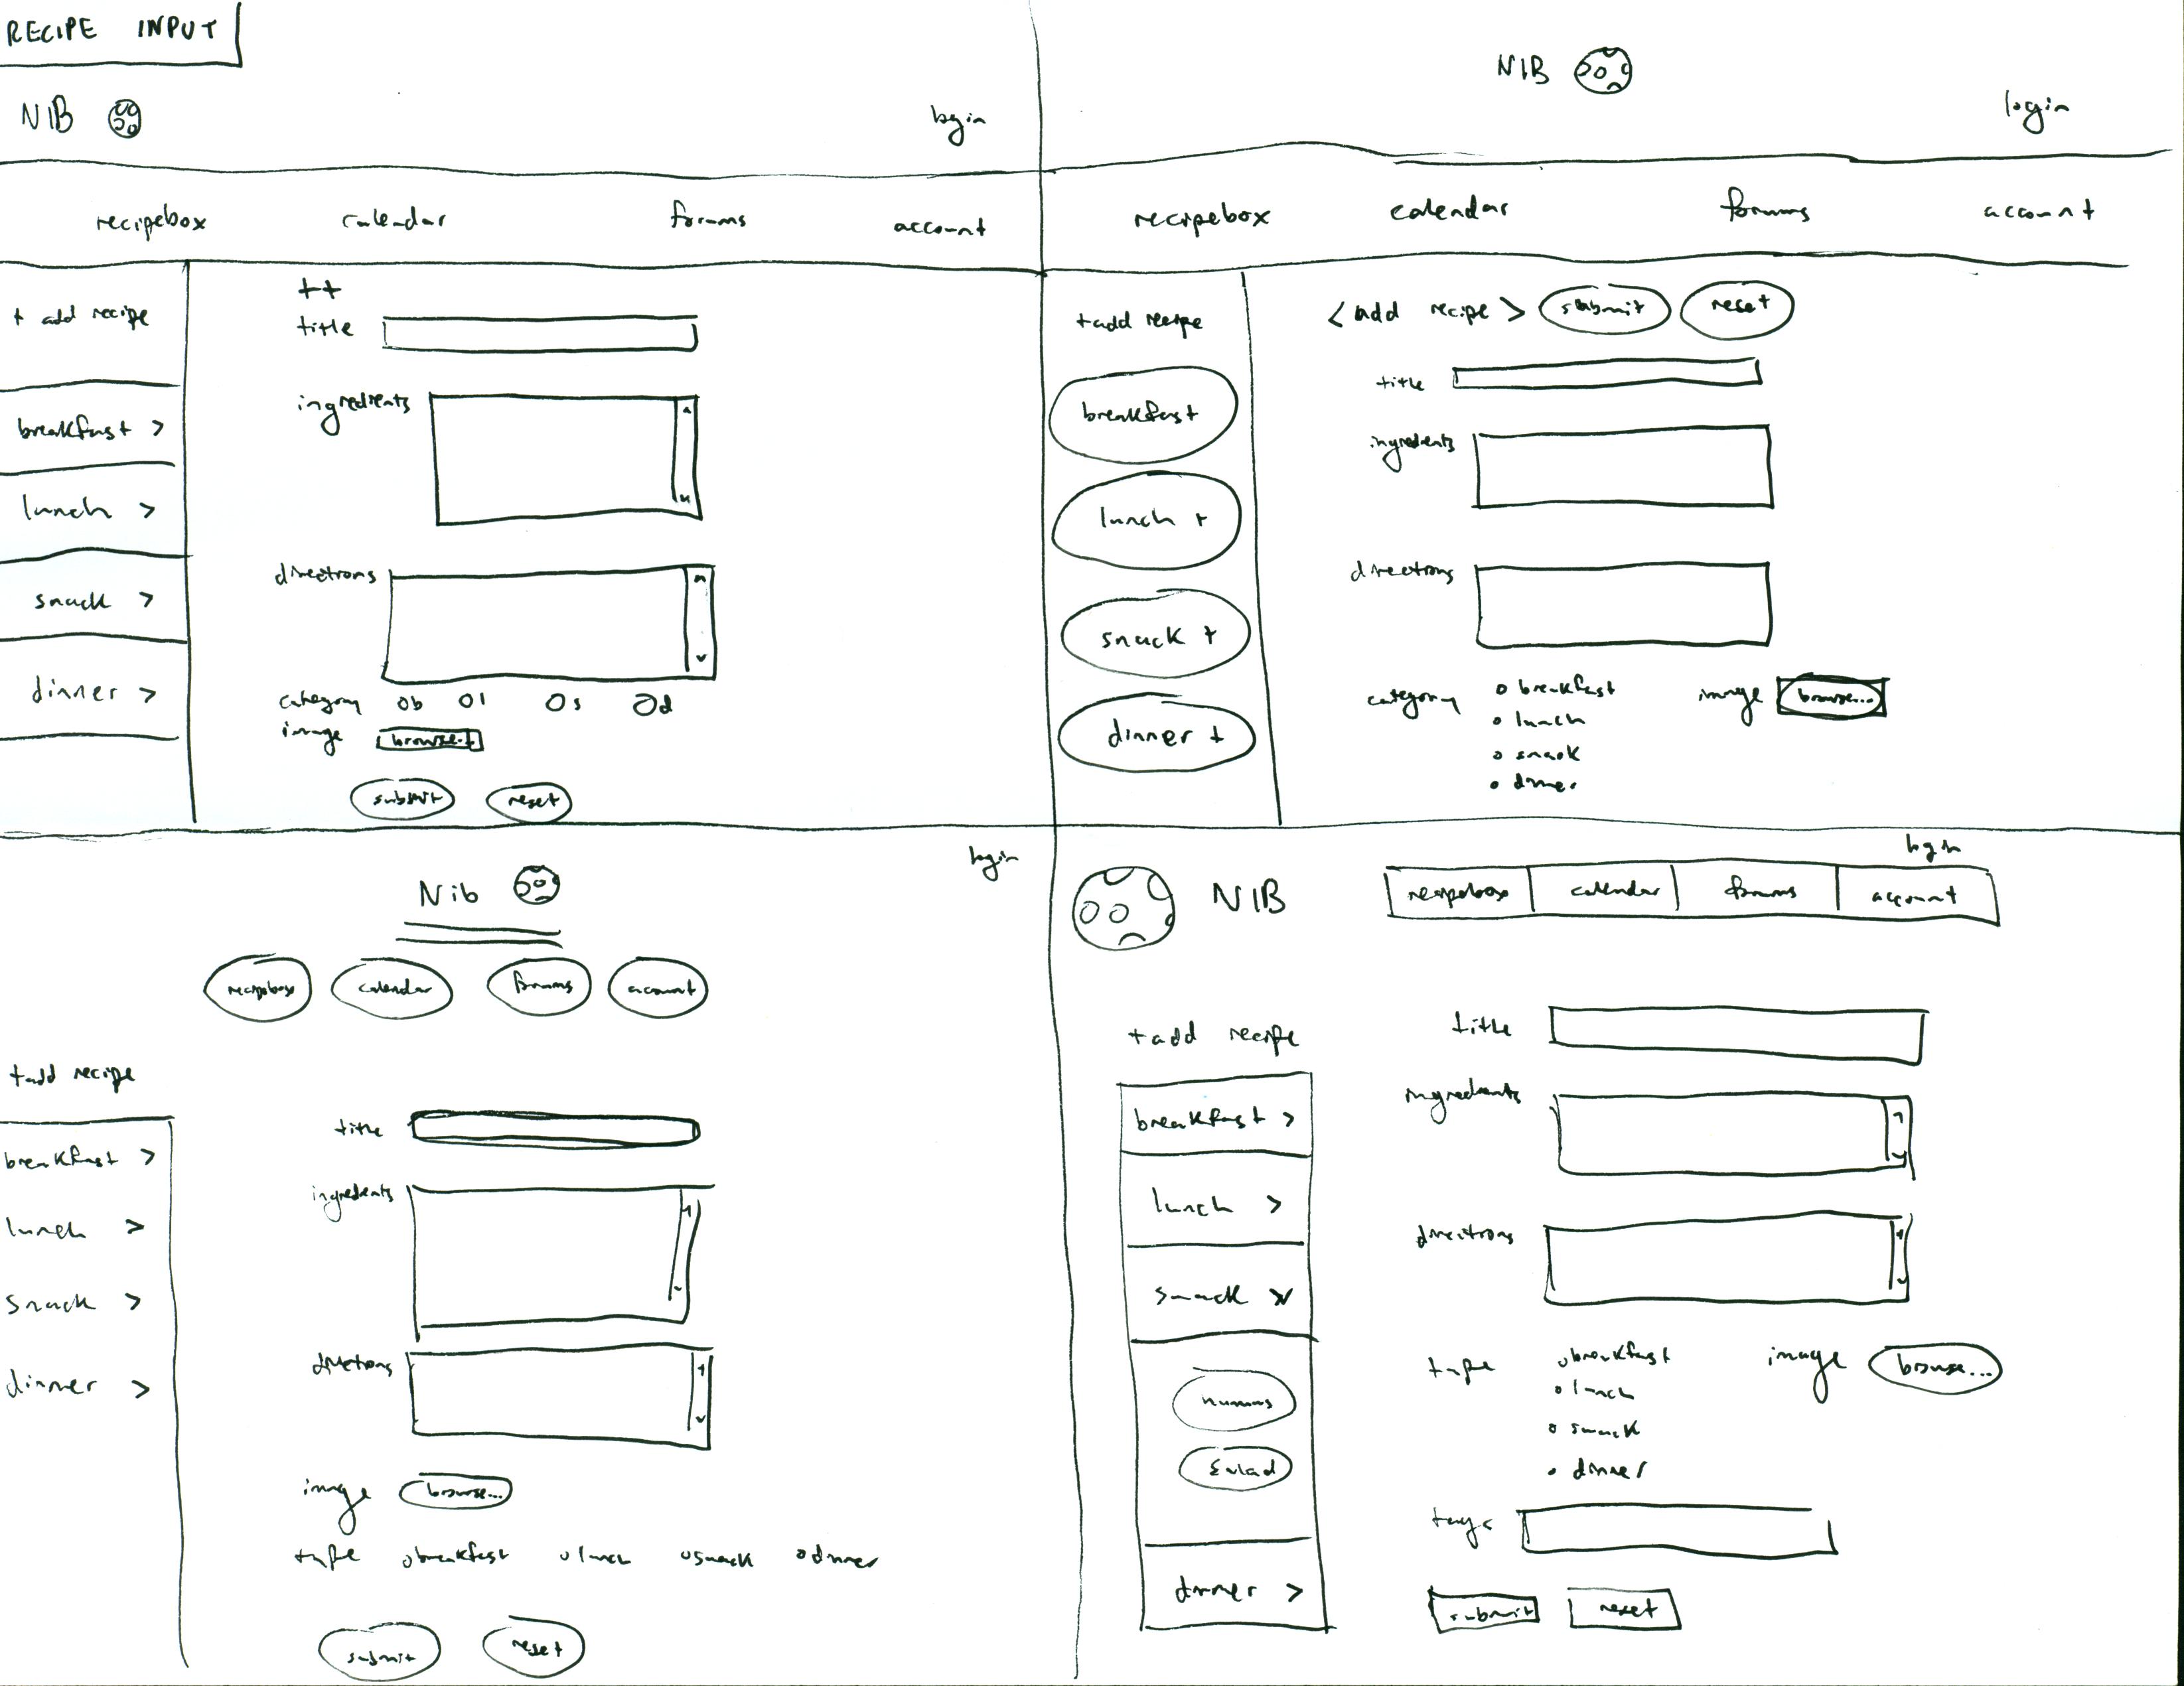 RECIPE INPUT
NIB
login
recipebox calendar forums account
+ add recipe
breakfast >
lunch >
snack >
dinner >
++
title
ingredients
directions
category b l s d
image browse..
submit reset
NIB
login
recipebox calendar forums account
+add recipe
breakfast
lunch +
snack +
dinner +
< add recipe > submit reset
title
ingredients
directions
category breakfast
lunch
snack
dinner
image browse...
login
Nib
recipebox calendar forums account
+add recipe
breakfast >
lunch >
snack >
dinner >
title
ingredients
directions
image browse...
type breakfast lunch snack dinner
submit reset
login
NIB
recipebox calendar forums account
+add recipe
breakfast >
lunch >
snack
salad
dinner >
title
ingredients
directions
type breakfast
lunch
snack
dinner
image browse...
tags
submit reset